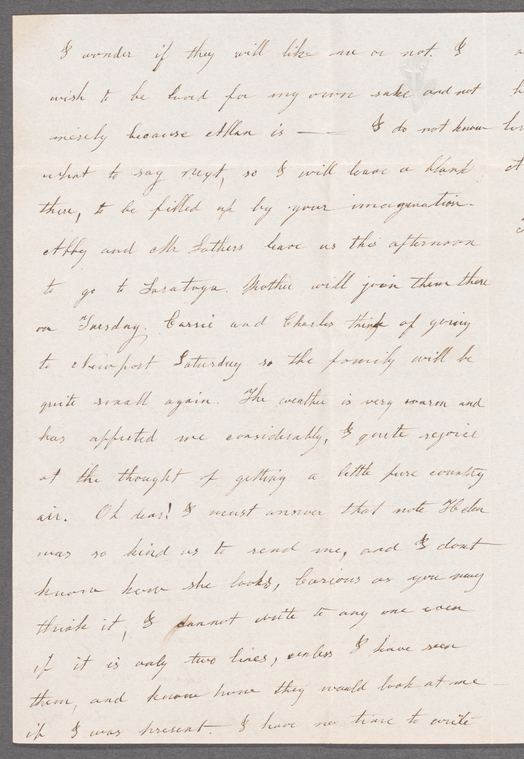 I wonder if they will like me or not. I
wish to be loved for my own sake and not
merely because Allan is —— I do not know
what to say next, so I will leave a blank
there, to be filled up by your imagination.
Abby and Mr Lathers leave us this afternoon
to go to Saratoga. Mother will join them there
on Tuesday. Carrie and Charles think of going
to Newport Saturday so the family will be
quite small again. The weather is very warm and
has affected me considerably, I quite rejoice
at the thought of getting a little pure country
air. Oh dear! I must answer that note Helen
was so kind as to send me, and I dont
know how she looks, Curious as you may
think it, I cannot write to any one even
if it is only two lines, unless I have seen
them, and know how they would look at me
if I was present. I have no time to write